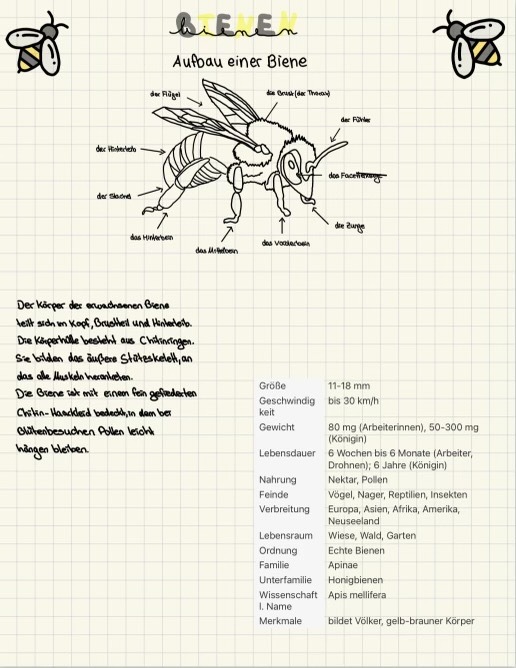 BIENEN
bienen
Aufbau einer Biene
der Flügel
die Brust (der Thorax)
der Fühler
der Hinterleib
das Facettenauge
der Stachel
die Zunge
das Hinterbein
das Mittelbein
das Vorderbein
Der Körper der erwachsenen Biene
teilt sich in Kopf, Brustteil und Hinterleib.
Die Körperhülle besteht aus Chitinringen.
Sie bilden das äußere Stützskelett, an
das alle Muskeln
Die Biene ist mit einem fein gefiederten
Chitin-Haarkleid bedeckt, in dem bei
Blütenbesuchen Pollen leicht
hängen bleiben.
Größe 11-18 mm
Geschwindig bis 30 km/h
keit
Gewicht 80 mg (Arbeiterinnen), 50-300 mg
(Königin)
Lebensdauer 6 Wochen bis 6 Monate (Arbeiter,
Drohnen); 6 Jahre (Königin)
Nahrung Nektar, Pollen
Feinde Vögel, Nager, Reptilien, Insekten
Verbreitung Europa, Asien, Afrika, Amerika,
Neuseeland
Lebensraum Wiese, Wald, Garten
Ordnung Echte Bienen
Familie Apinae
Unterfamilie Honigbienen
Wissenschaft Apis mellifera
l. Name
Merkmale bildet Völker, gelb-brauner Körper